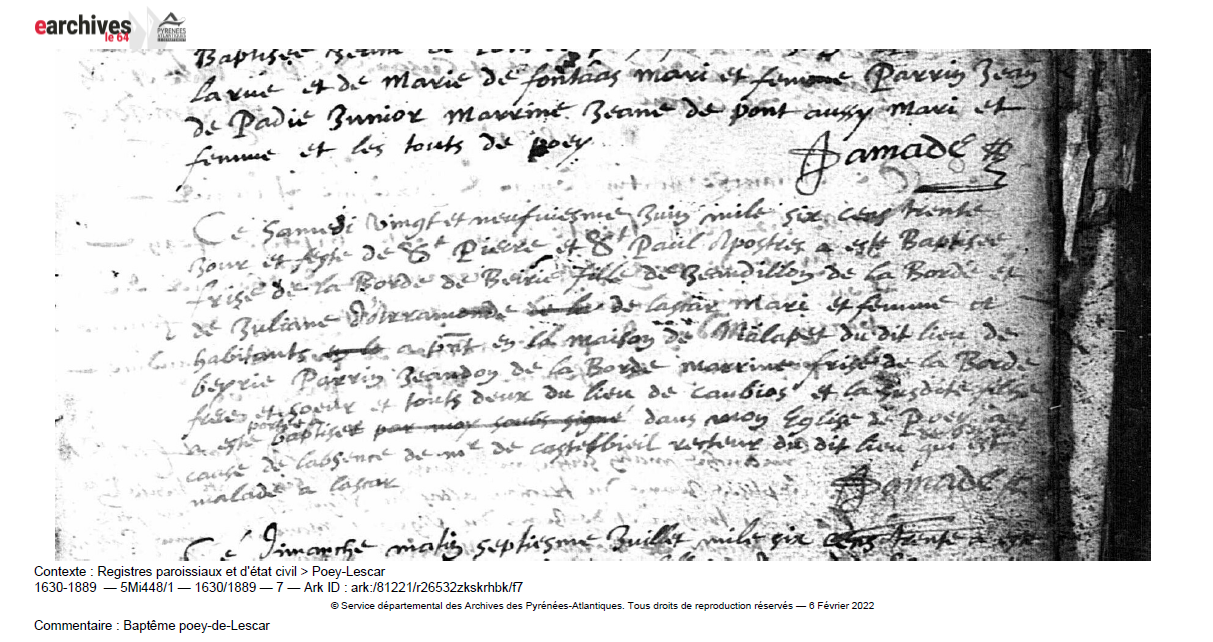 earchives
le 64
PYRÉNÉES
ATLANTIQUES
Baptisée
larüe et de Marie de fontaas mari et femme Parrin Jean
de Padie Junior Marrine Jeane de pont aussy Mari et
femme et les touts de poey
Damade
Ce Samedi vingt et neufuiesme Juin mile six cens trente
Jour et feste de St Pierre et St Paul Apostres a esté Baptisée
frise de la Borde de Beirie fille de Jeandillon de la Borde et
de Juliane d'arramonde de la de lascar Mari et femme et
habitants en la a pnt en la maison de Malapet du dit lieu de
beyrie Parrin Jeandon de la Borde marrine frise de la Borde
frere et soeur et touts deux du lieu de Caubios et la susdite fille
a esté portée baptiser par moy soubs signé dans mon Eglise de Poey
cause de l'absence de mr de castetbieil recteur du dit lieu qui est
malade a lascar
Damade
Ce Dimanche matin septiesme Juillet mile six cens trente a esté
Contexte : Registres paroissiaux et d'état civil > Poey-Lescar
1630-1889 — 5Mi448/1 — 1630/1889 — 7 — Ark ID : ark:/81221/r26532zkskrhbk/f7
© Service départemental des Archives des Pyrénées-Atlantiques. Tous droits de reproduction réservés — 6 Février 2022
Commentaire : Baptême poey-de-Lescar